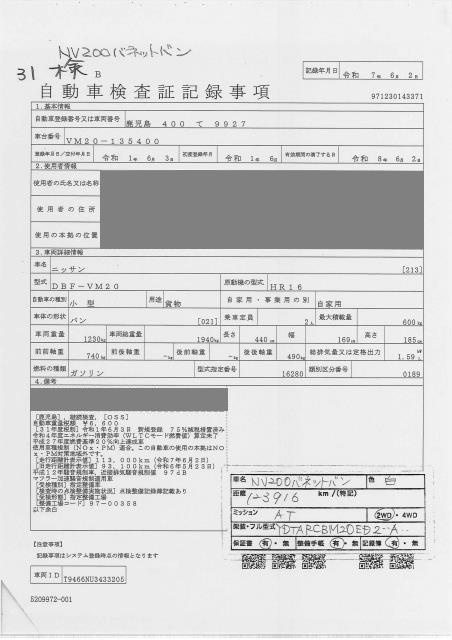 NV200バネットバン
31 様 B
記録年月日 令和 7年 6月 2日
自動車検査証記録事項
971230143371
1.基本情報
自動車登録番号又は車両番号 鹿児島 400 て 9927
車台番号 VM20-135400
登録年月日/交付年月日 令和 1年 6月 3日 初度登録年月 令和 1年 6月 有効期間の満了する日 令和 8年 6月 2日
2.使用者情報
使用者の氏名又は名称
使用者の住所
使用の本拠の位置
3.車両詳細情報
車名 ニッサン [213]
型式 DBF-VM20 原動機の型式 HR16
自動車の種別 小型 用途 貨物 自家用・事業用の別 自家用
車体の形状 バン [021] 乗車定員 2人 最大積載量 600kg
車両重量 1230kg 車両総重量 1940kg 長さ 440cm 幅 169cm 高さ 185cm
前前軸重 740kg 前後軸重 -kg 後前軸重 -kg 後後軸重 490kg 総排気量又は定格出力 1.59
燃料の種類 ガソリン 型式指定番号 16280 類別区分番号 0189
4.備考
[鹿児島],継続検査,[OSS]
自動車重量税額 ¥6,600
[31年度税制]令和1年6月3日 新規登録 75%減税措置済み
令和4年度エネルギー消費効率(WLTCモード燃費値)算定未了
平成27年度燃費基準20%向上達成車
使用車種規制(NOx・PM)適合、この自動車の使用の本拠はNOx・PM対策地域外です。
[走行距離計表示値]113,000km(令和7年6月2日)
[旧走行距離計表示値]93,100km(令和6年5月23日)
平成12年騒音規制車、近接排気騒音規制値 97dB
マフラー加速騒音規制適用車
[受検種別]指定整備車
[検査時の点検整備実施状況]点検整備記録簿記載あり
[受検形態]指定整備工場
[整備工場コード]97-00358
以下余白
車名 NV200バネットバン 色 白
距離 123916 km/(特記)
ミッション AT 2WD・4WD
架装・フル型式
保証書 有・無 整備手帳 有・無 記録簿 有・無
[注意事項]
記載事項はシステム登録時点の情報となります
車両ID T9466NU3433205
5209972-001